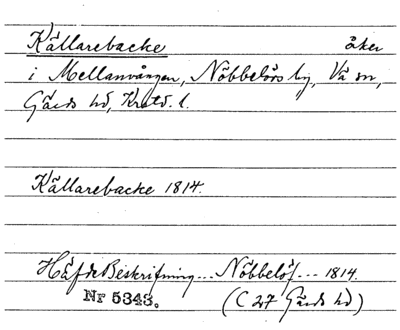 Källarebacke åker
i Mellanvången, Nöbbelövs by, Vä sn,
Gärds hd, Krstds. l.
Källarebacke 1814.
HäfdeBeskrifning... Nöbbelöf... 1814.
Nr 5343. (C 27 Gärds hd)